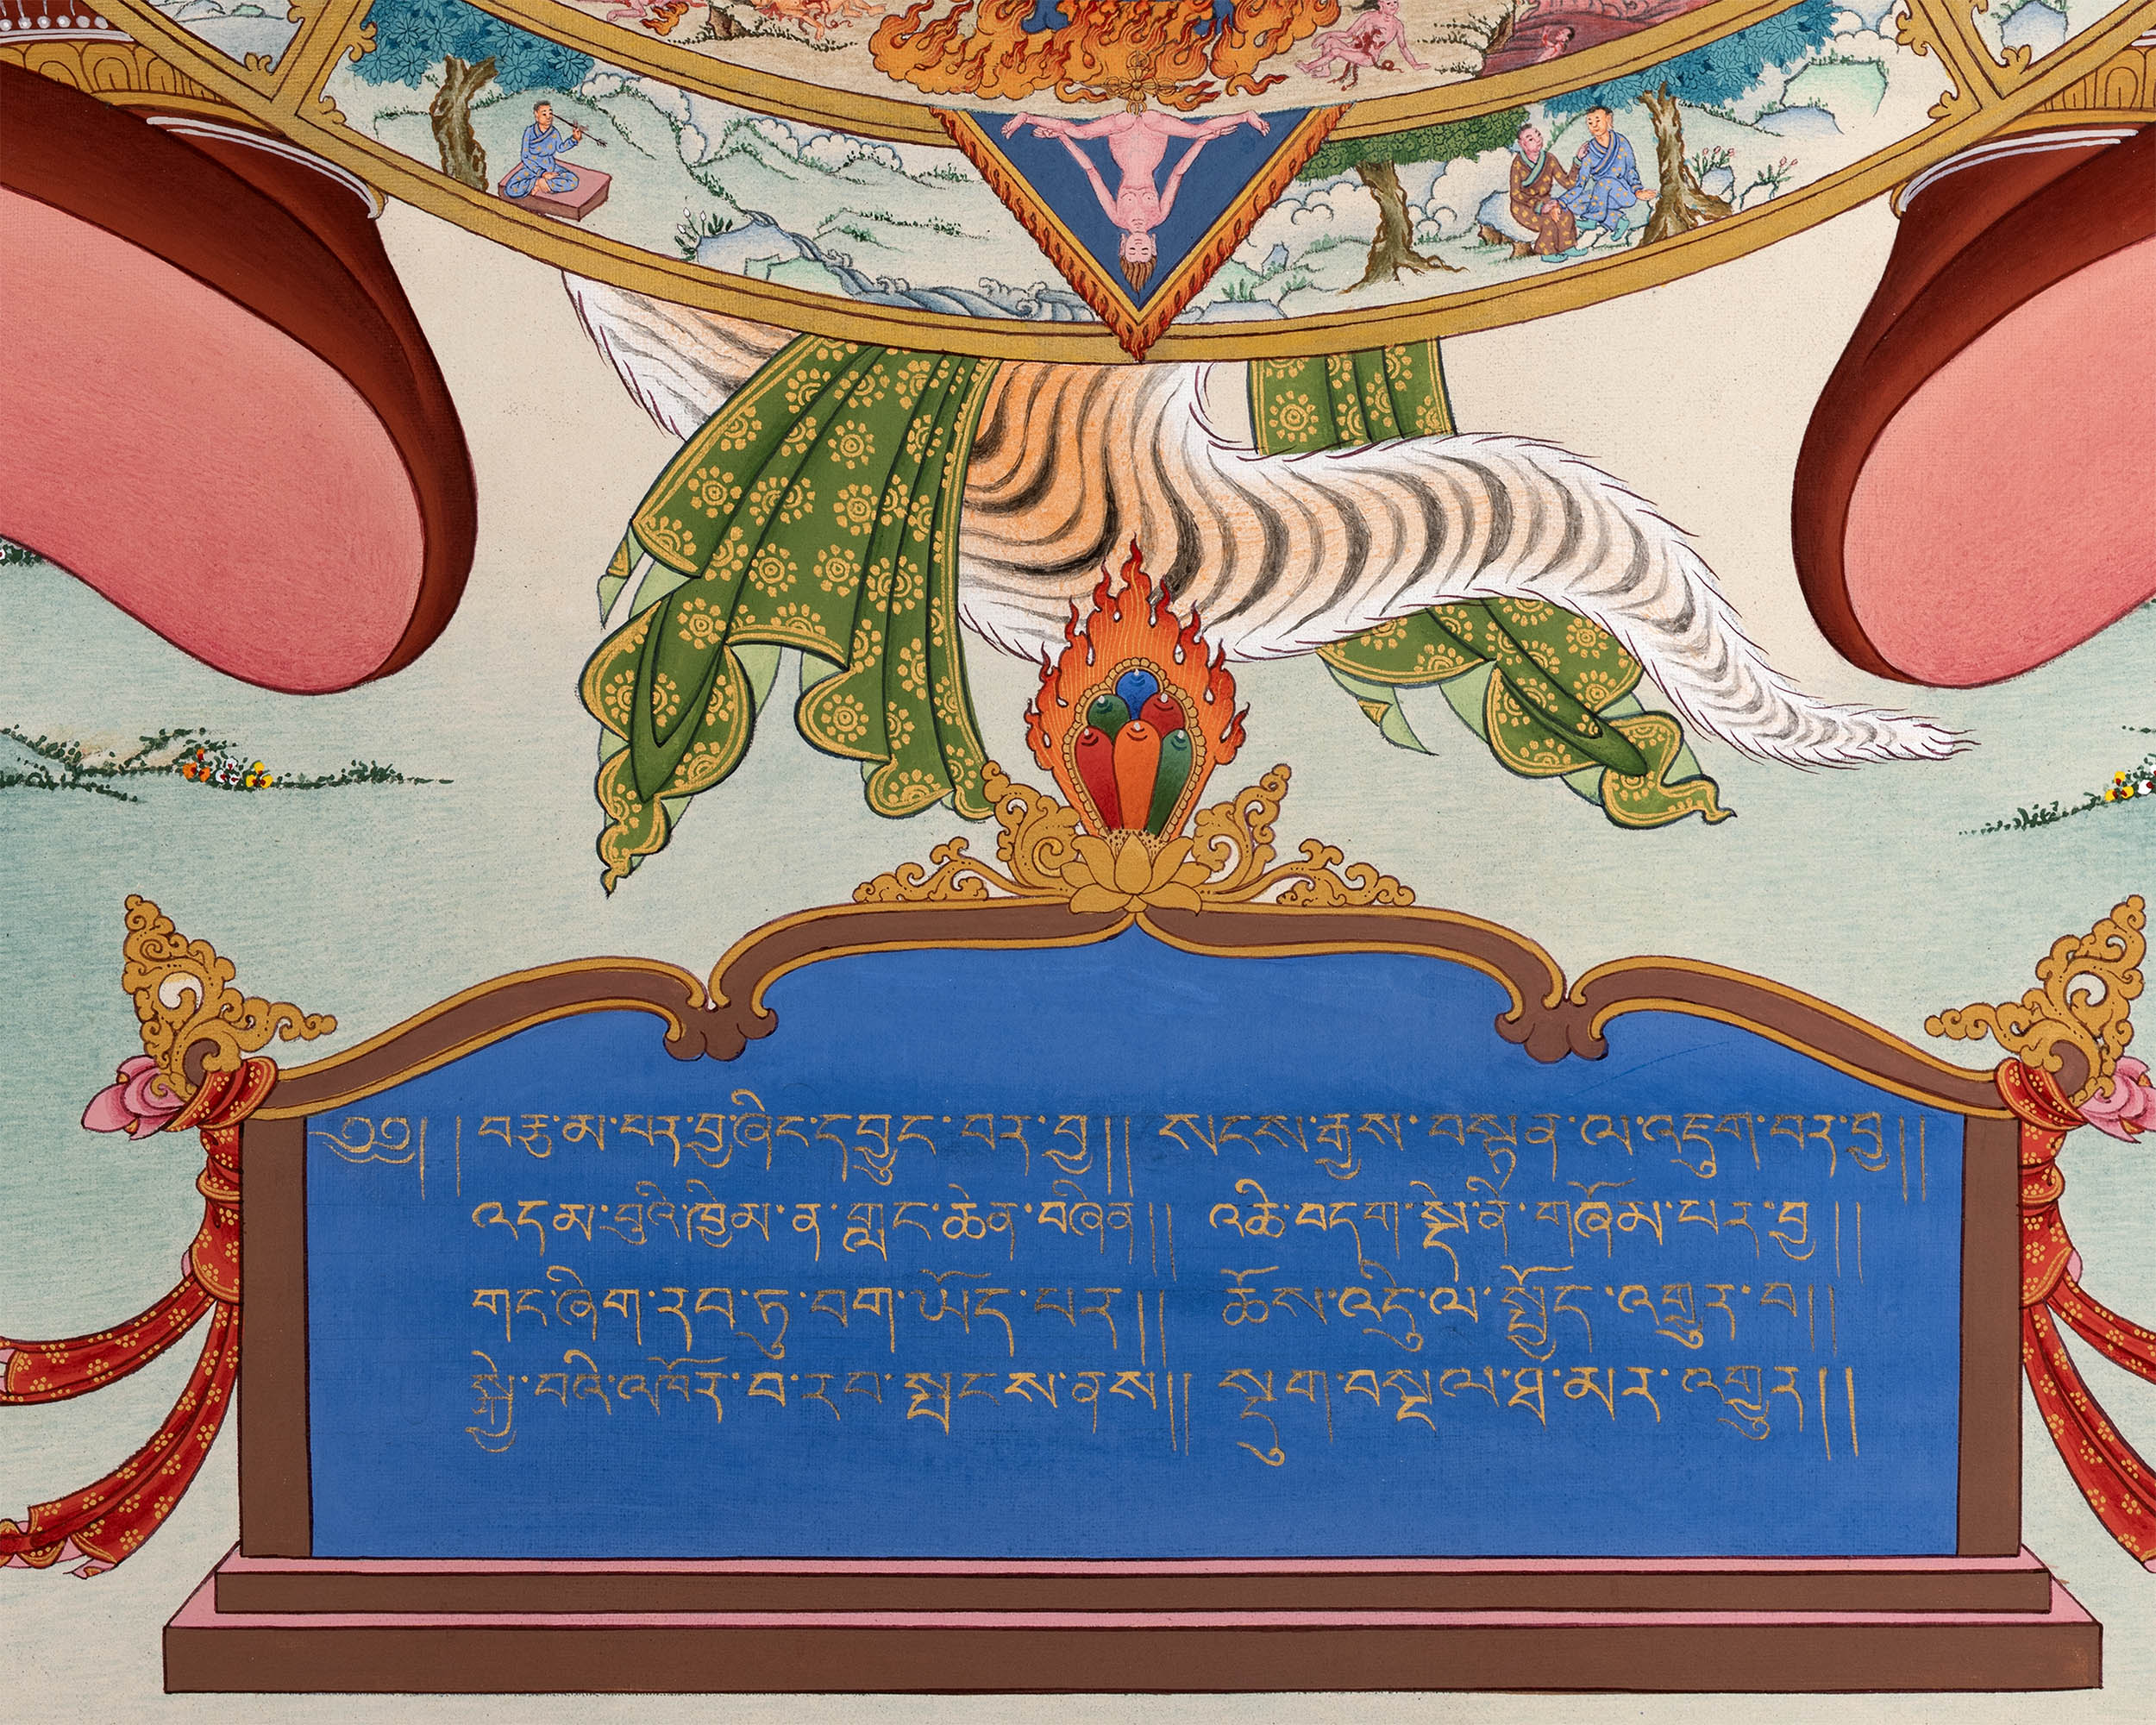 ༄༅། །བརྩམ་པར་བྱ་ཞིང་དབྱུང་བར་བྱ།། སངས་རྒྱས་བསྟན་ལ་འཇུག་བར་བྱ།།
འདམ་བུའི་ཁྱིམ་ན་གླང་ཆེན་བཞིན།། འཆི་བདག་སྡེ་ནི་གཞོམ་པར་བྱ།།
གང་ཞིག་རབ་ཏུ་བག་ཡོད་པར།། ཆོས་འདིུ་ལ་སྤྱོད་འགྱུར་བ།།
སྐྱེ་བའི་འཁོར་བ་རབ་སྤངས་ནས།། སྡུག་བསྔལ་ཐ་མར་འགྱུར།།